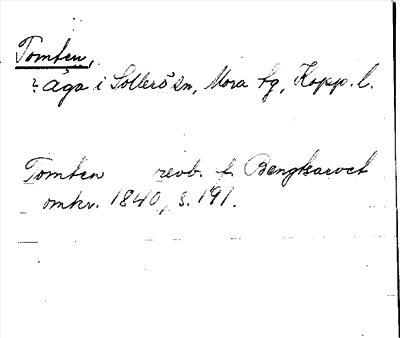 Tomten,
? äga i Sollerö sn, Mora tg, Kopp. l.
Tomten revb. f. Bengtsarvet
omkr. 1840, s. 191.